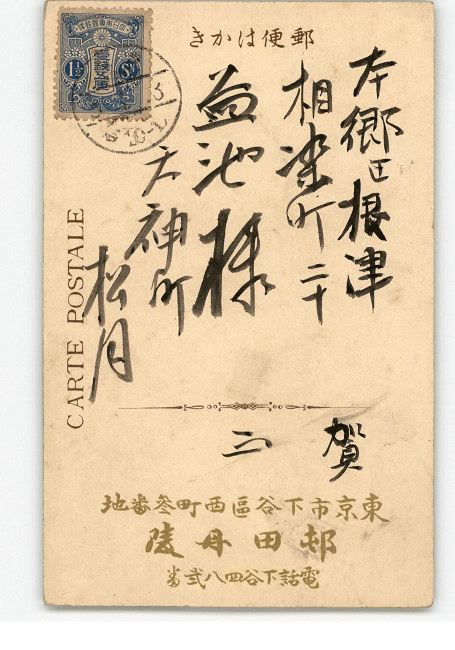 郵便はかき
本郷区根津
相染町二十
益池様
天神町
松月
CARTE POSTALE
1½ Sn
賀
東京市下谷區西町叄番地
邨田丹陵
電話下谷四八弐番